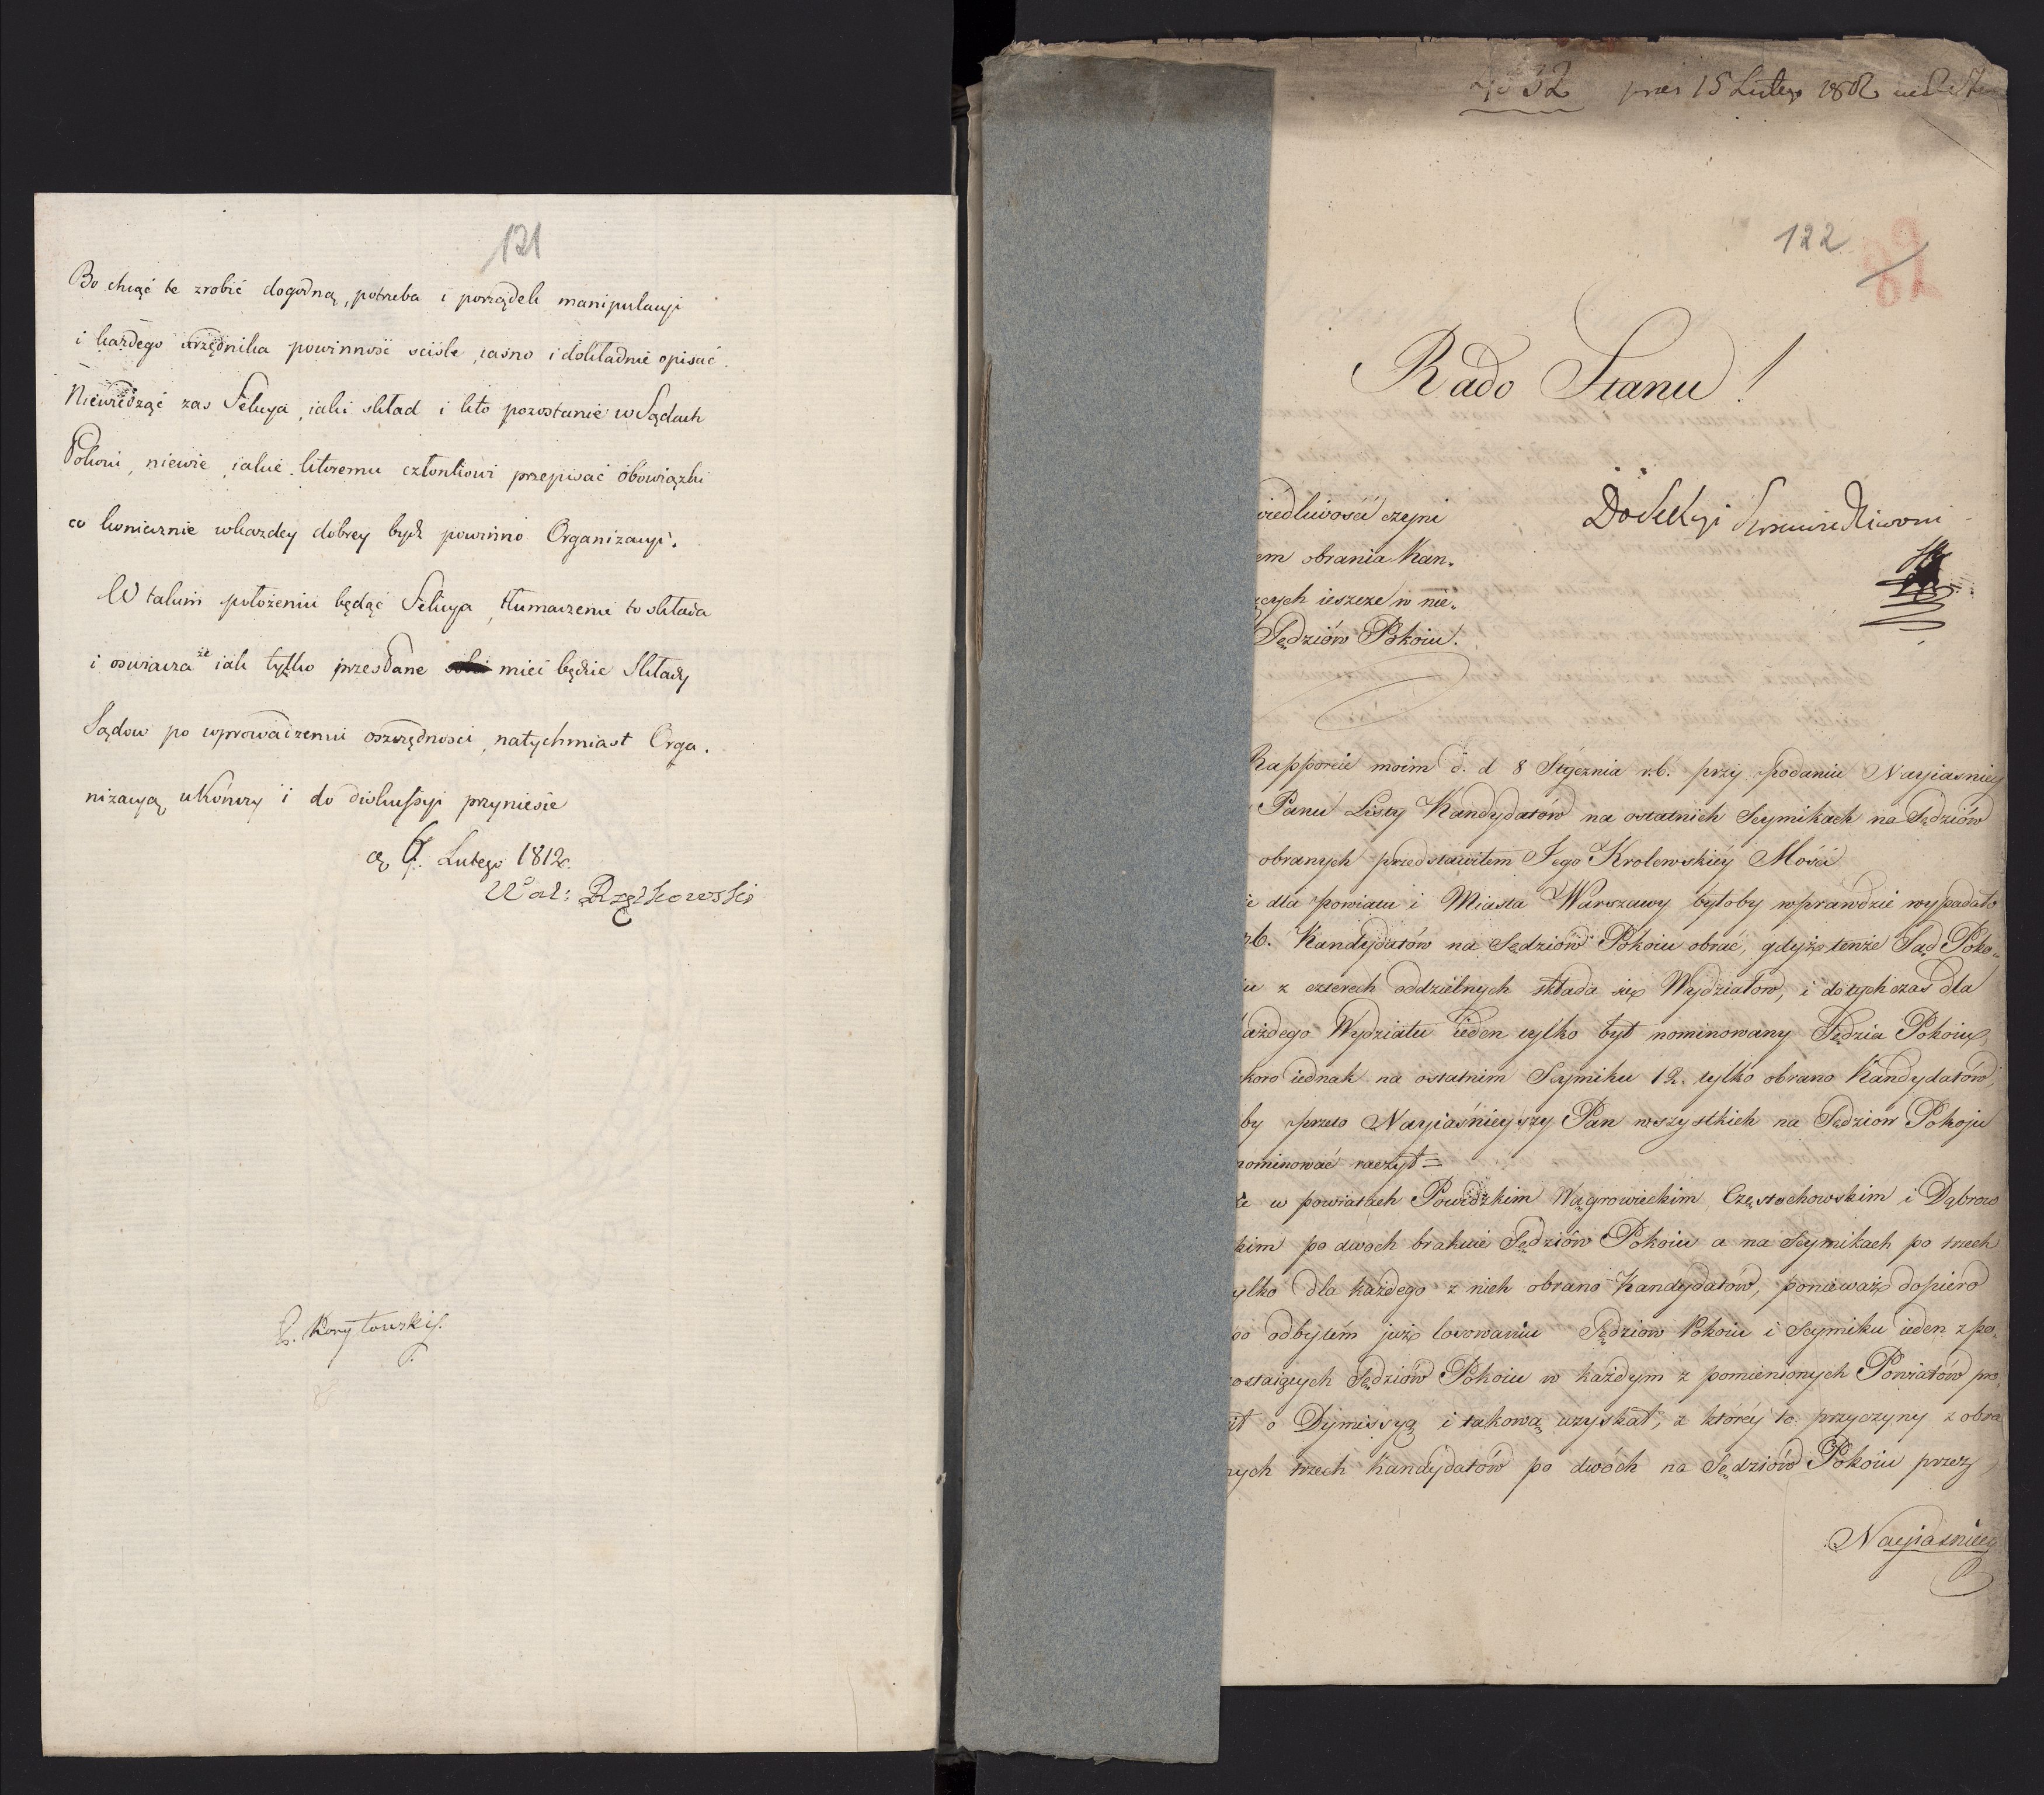 121
Bo chcąc te zrobić dogodną, potrzeba i porządek manipulacyi
i każdego urzędnika powinność scisle, iasno i dokładnie opisać.
Niewiedząc zas Sekcya, iaki skład i kto pozostanie w Sądach
Pokoiu, niewie, iakie ktoremu członkowi przepisać obowiązki
co koniecznie wkazdey dobrey bydź powinno Organizacyi.
W takim położeniu będąc Sekcya, tłumaczenie to składa
i oswiacza że iak tylko przesłane mieć będzie składy
Sądow po wprowadzeniu oszczędnosci, natychmiast Orga.
nizacyą ukończy i do diskussyi przyniesie
6. Lutego 1812.
Wal: Rzętkowski
Korytowski
32 prez 15 Lutego 1812
122
Rado Stanu!
Do Sekcyi Sprawiedliwosci
iedliwości czyni
em obrania Kan.
ących ieszcze w nie.
Sędziów Pokoiu.
Rapporcie moim d. d 8 Stycznia r.b. przy podaniu Nayiasniey
Panu Listy Kandydatów na ostatnich Seymikach na Sędziów
obranych przedstawiłem Jego Krolewskiéy Mości
e dla powiatu i Miasta Warszawy byłoby wprawdzie wypadało
Kandydatów na Sędziów Pokoiu obrać, gdyż tenże Sąd Poko=
iu z czterech oddzielnych składa się Wydziałow, i dotychczas dla
ażdego Wydziału ieden tylko był nominowany Sędzia Pokoiu,
koro iednak na ostatnim Seymiku 12. tylko obrano Kandydatów,
by przeto Nayiaśnieyszy Pan wszystkich na Sędziow Pokoju
nominować raczył=
że w powiatach Powidzkim Wągrowieckim Częstochowskim i Dąbrow
kim po dwoch brakuie Sędziów Pokoiu a na Seymikach po trzech
ylko dla każdego z nich obrano Kandydatów, ponieważ dopiero
po odbytém już losowaniu Sędziow Pokoiu i Seymiku ieden z po.
ostaiących Sędziów Pokoiu w każdym z pomienionych Powiatów pro.
ił o Dymissyą i takową uzyskał, z któréy to przyczyny z obra
nych trzech Kandydatów po dwóch na Sędziów Pokoiu przez
Nayiasniey